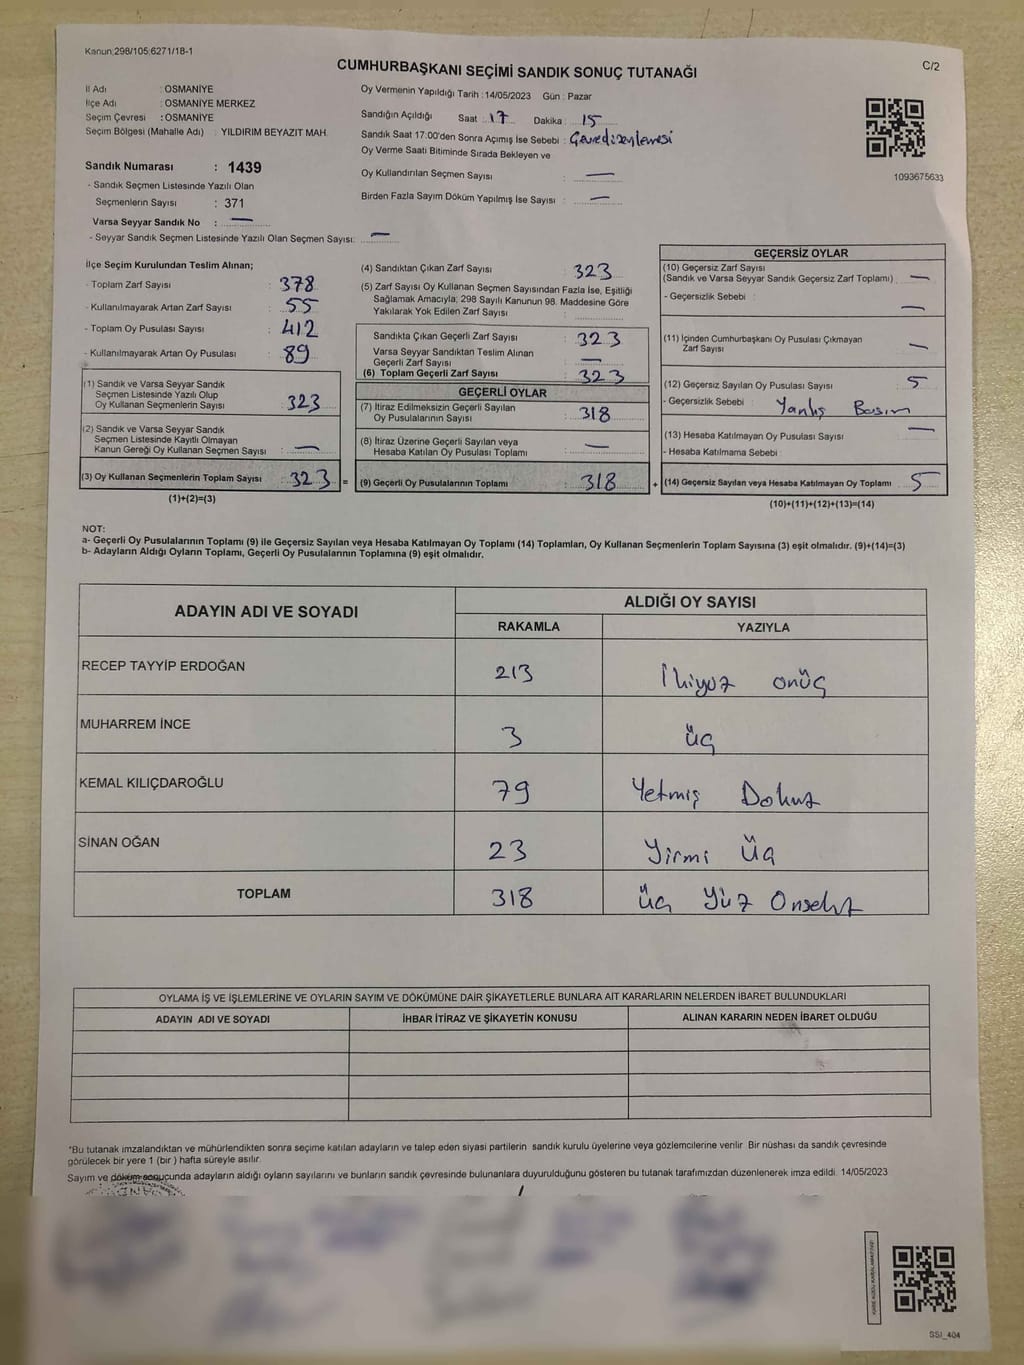 Kanun;298/105;6271/18-1
CUMHURBAŞKANI SEÇİMİ SANDIK SONUÇ TUTANAĞI
C/2
İl Adı : OSMANİYE
İlçe Adı : OSMANİYE MERKEZ
Seçim Çevresi : OSMANİYE
Seçim Bölgesi (Mahalle Adı) : YILDIRIM BEYAZIT MAH.
Oy Vermenin Yapıldığı Tarih : 14/05/2023 Gün : Pazar
Sandığın Açıldığı Saat : 17 Dakika : 15
Sandık Saat 17:00'den Sonra Açılmış İse Sebebi : Çevre düzenlemesi
Oy Verme Saati Bitiminde Sırada Bekleyen ve
Oy Kullandırılan Seçmen Sayısı : —
Birden Fazla Sayım Döküm Yapılmış İse Sayısı : —
1093675633
Sandık Numarası : 1439
- Sandık Seçmen Listesinde Yazılı Olan
Seçmenlerin Sayısı : 371
Varsa Seyyar Sandık No : —
- Seyyar Sandık Seçmen Listesinde Yazılı Olan Seçmen Sayısı: —
İlçe Seçim Kurulundan Teslim Alınan;
- Toplam Zarf Sayısı : 378
- Kullanılmayarak Artan Zarf Sayısı : 55
- Toplam Oy Pusulası Sayısı : 412
- Kullanılmayarak Artan Oy Pusulası : 89
(1) Sandık ve Varsa Seyyar Sandık
Seçmen Listesinde Yazılı Olup
Oy Kullanan Seçmenlerin Sayısı : 323
(2) Sandık ve Varsa Seyyar Sandık
Seçmen Listesinde Kayıtlı Olmayan
Kanun Gereği Oy Kullanan Seçmen Sayısı : —
(3) Oy Kullanan Seçmenlerin Toplam Sayısı : 323 =
(1)+(2)=(3)
(4) Sandıktan Çıkan Zarf Sayısı : 323
(5) Zarf Sayısı Oy Kullanan Seçmen Sayısından Fazla İse, Eşitliği
Sağlamak Amacıyla; 298 Sayılı Kanunun 98. Maddesine Göre
Yakılarak Yok Edilen Zarf Sayısı :
Sandıkta Çıkan Geçerli Zarf Sayısı : 323
Varsa Seyyar Sandıktan Teslim Alınan
Geçerli Zarf Sayısı : —
(6) Toplam Geçerli Zarf Sayısı : 323
GEÇERLİ OYLAR
(7) İtiraz Edilmeksizin Geçerli Sayılan
Oy Pusulalarının Sayısı : 318
(8) İtiraz Üzerine Geçerli Sayılan veya
Hesaba Katılan Oy Pusulası Toplamı : —
(9) Geçerli Oy Pusulalarının Toplamı : 318 +
GEÇERSİZ OYLAR
(10) Geçersiz Zarf Sayısı
(Sandık ve Varsa Seyyar Sandık Geçersiz Zarf Toplamı) : —
- Geçersizlik Sebebi : —
(11) İçinden Cumhurbaşkanı Oy Pusulası Çıkmayan
Zarf Sayısı : —
(12) Geçersiz Sayılan Oy Pusulası Sayısı : 5
- Geçersizlik Sebebi : Yanlış Basım
(13) Hesaba Katılmayan Oy Pusulası Sayısı : —
- Hesaba Katılmama Sebebi :
(14) Geçersiz Sayılan veya Hesaba Katılmayan Oy Toplamı : 5
(10)+(11)+(12)+(13)=(14)
NOT:
a- Geçerli Oy Pusulalarının Toplamı (9) ile Geçersiz Sayılan veya Hesaba Katılmayan Oy Toplamı (14) Toplamları, Oy Kullanan Seçmenlerin Toplam Sayısına (3) eşit olmalıdır. (9)+(14)=(3)
b- Adayların Aldığı Oyların Toplamı, Geçerli Oy Pusulalarının Toplamına (9) eşit olmalıdır.
ADAYIN ADI VE SOYADI ALDIĞI OY SAYISI
RAKAMLA YAZIYLA
RECEP TAYYİP ERDOĞAN 213 İkiyüz onüç
MUHARREM İNCE 3 üç
KEMAL KILIÇDAROĞLU 79 Yetmiş Dokuz
SİNAN OĞAN 23 Yirmi Üç
TOPLAM 318 Üç Yüz Onsekiz
OYLAMA İŞ VE İŞLEMLERİNE VE OYLARIN SAYIM VE DÖKÜMÜNE DAİR ŞİKAYETLERLE BUNLARA AİT KARARLARIN NELERDEN İBARET BULUNDUKLARI
ADAYIN ADI VE SOYADI İHBAR İTİRAZ VE ŞİKAYETİN KONUSU ALINAN KARARIN NEDEN İBARET OLDUĞU
*Bu tutanak imzalandıktan ve mühürlendikten sonra seçime katılan adayların ve talep eden siyasi partilerin sandık kurulu üyelerine veya gözlemcilerine verilir. Bir nüshası da sandık çevresinde
görülecek bir yere 1 (bir) hafta süreyle asılır.
Sayım ve döküm sonucunda adayların aldığı oyların sayılarını ve bunların sandık çevresinde bulunanlara duyurulduğunu gösteren bu tutanak tarafımızdan düzenlenerek imza edildi. 14/05/2023
SSI_404